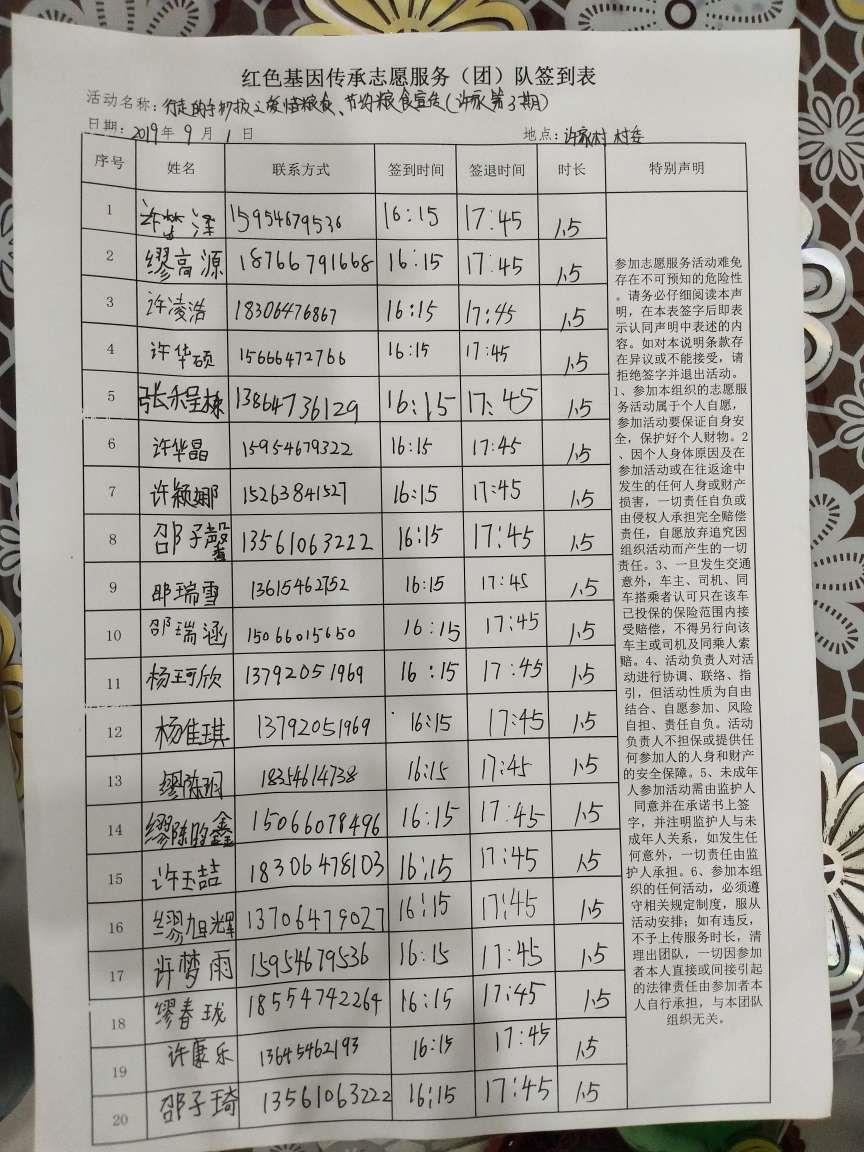 红色基因传承志愿服务（团）队签到表
活动名称：行走的手抄报之爱惜粮食、节约粮食宣传（许家第3期）
日期：2019年9月1日 地点：许家村 村委
序号 姓名 联系方式 签到时间 签退时间 时长 特别声明
1 许梦泽 15954679536 16:15 17:45 1.5
2 缪高源 18766791668 16:15 17:45 1.5
3 许凌浩 18306476867 16:15 17:45 1.5
4 许华硕 15666472766 16:15 17:45 1.5
5 张禾呈栋 13864736129 16:15 17:45 1.5
6 许华晶 15954679322 16:15 17:45 1.5
7 许颖娜 15263841527 16:15 17:45 1.5
8 邵子馨 13561063222 16:15 17:45 1.5
9 邵瑞雪 13615462752 16:15 17:45 1.5
10 邵瑞涵 15066015650 16:15 17:45 1.5
11 杨珂欣 13792051969 16:15 17:45 1.5
12 杨佳琪 13792051969 16:15 17:45 1.5
13 缪陈玥 18354614738 16:15 17:45 1.5
14 缪陈昀鑫 15066078496 16:15 17:45 1.5
15 许玉喆 18306478103 16:15 17:45 1.5
16 缪旭辉 13706479027 16:15 17:45 1.5
17 许梦雨 15954679536 16:15 17:45 1.5
18 缪春珑 18554742264 16:15 17:45 1.5
19 许康乐 13645462193 16:15 17:45 1.5
20 邵子琦 13561063222 16:15 17:45 1.5
参加志愿服务活动难免
存在不可预知的危险性
。请务必仔细阅读本声
明，在本表签字后即表
示认同声明中表述的内
容。如对本说明条款存
在异议或不能接受，请
拒绝签字并退出活动。
1、参加本组织的志愿服
务活动属于个人自愿，
参加活动要保证自身安
全，保护好个人财物。2
、因个人身体原因及在
参加活动或在往返途中
发生的任何人身或财产
损害，一切责任自负或
由侵权人承担完全赔偿
责任，自愿放弃追究因
组织活动而产生的一切
责任。3、一旦发生交通
意外，车主、司机、同
车搭乘者认可只在该车
已投保的保险范围内接
受赔偿，不得另行向该
车主或司机及同乘人索
赔。4、活动负责人对活
动进行协调、联络、指
引，但活动性质为自由
结合、自愿参加、风险
自担、责任自负。活动
负责人不担保或提供任
何参加人的人身和财产
的安全保障。5、未成年
人参加活动需由监护人
同意并在承诺书上签
字，并注明监护人与未
成年人关系，如发生任
何意外，一切责任由监
护人承担。6、参加本组
织的任何活动，必须遵
守相关规定制度，服从
活动安排；如有违反，
不予上传服务时长，清
理出团队，一切因参加
者本人直接或间接引起
的法律责任由参加者本
人自行承担，与本团队
组织无关。